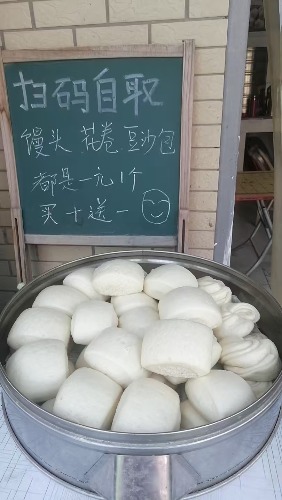 扫码自取
馒头 花卷 豆沙包
都是一元1个
买十送一